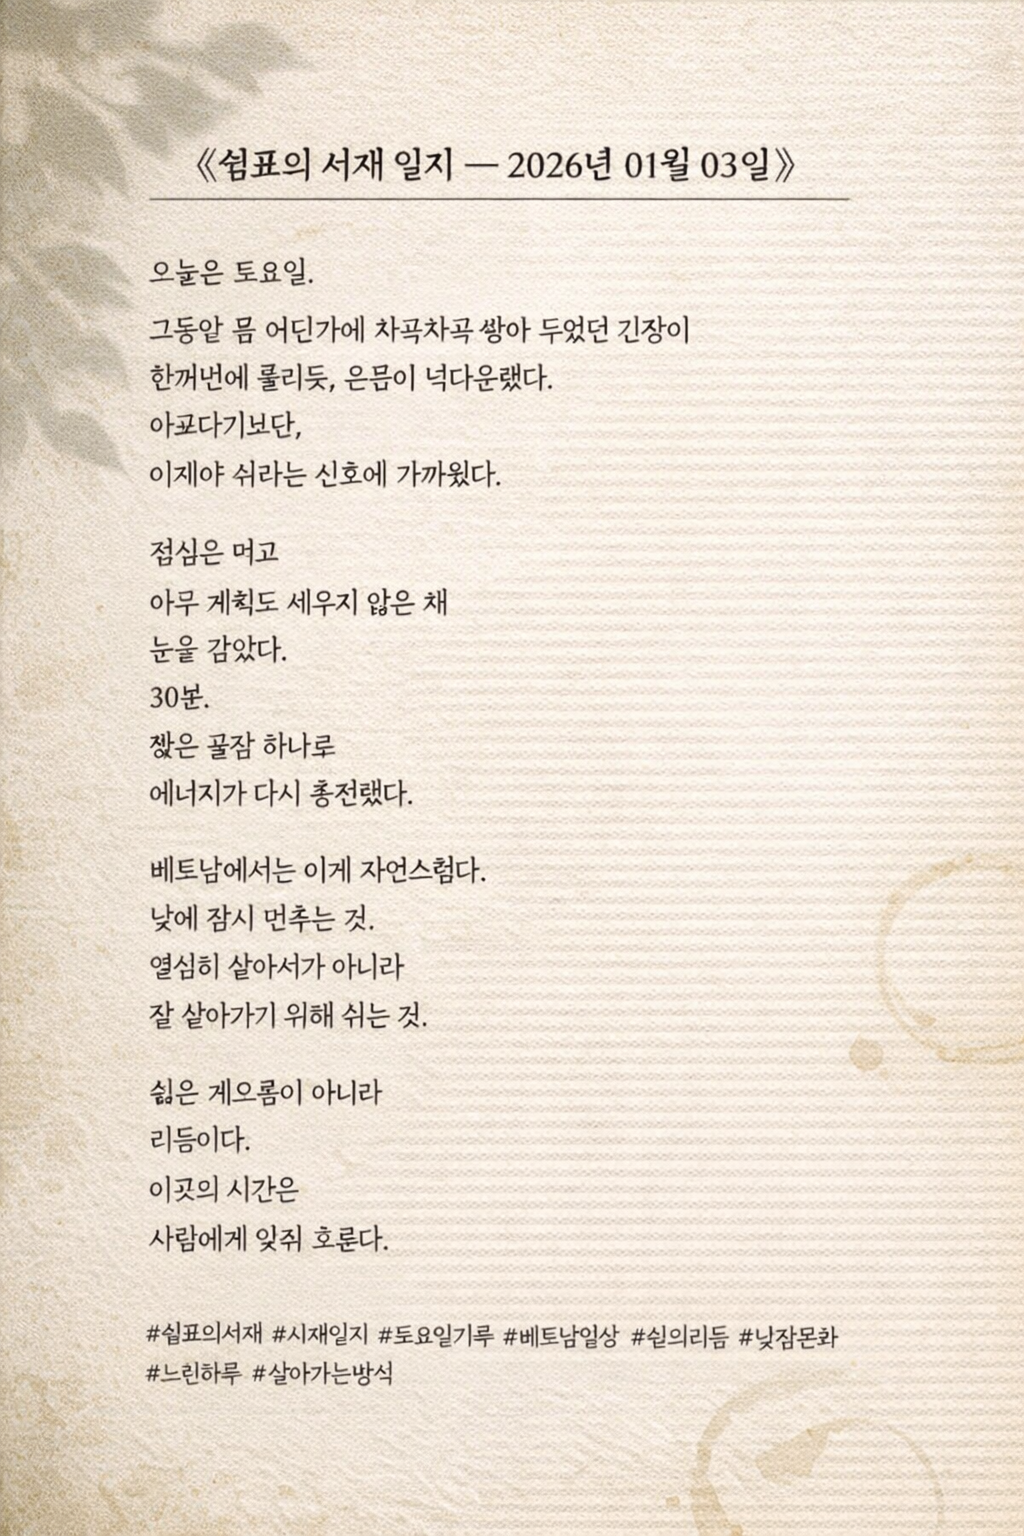 《쉼표의 서재 일지 — 2026년 01월 03일》
오눌은 토요일.
그동앝 믐 어딘가에 차곡차곡 쌓아 두었던 긴장이
한꺼번에 풀리듯, 은믐이 넉다운됐다.
아포다기보단,
이제야 쉬라는 신호에 가까웠다.
점심은 먹고
아무 계획도 세우지 않은 채
눈울 감았다.
30분.
짧은 꿀잠 하나로
에너지가 다시 충전됐다.
베토남에서는 이게 자언스럼다.
낮에 잠시 먼추는 것.
열심히 살아서가 아니라
잘 살아가기 위해 쉬는 것.
쉶은 게오롬이 아니라
리듬이다.
이곳의 시간은
사람에게 맞춰 흐른다.
#쉴표의서재 #시재일지 #토요일기루 #베토남일상 #쉳의리듬 #낮잠몬화
#느린하루 #살아가는방석